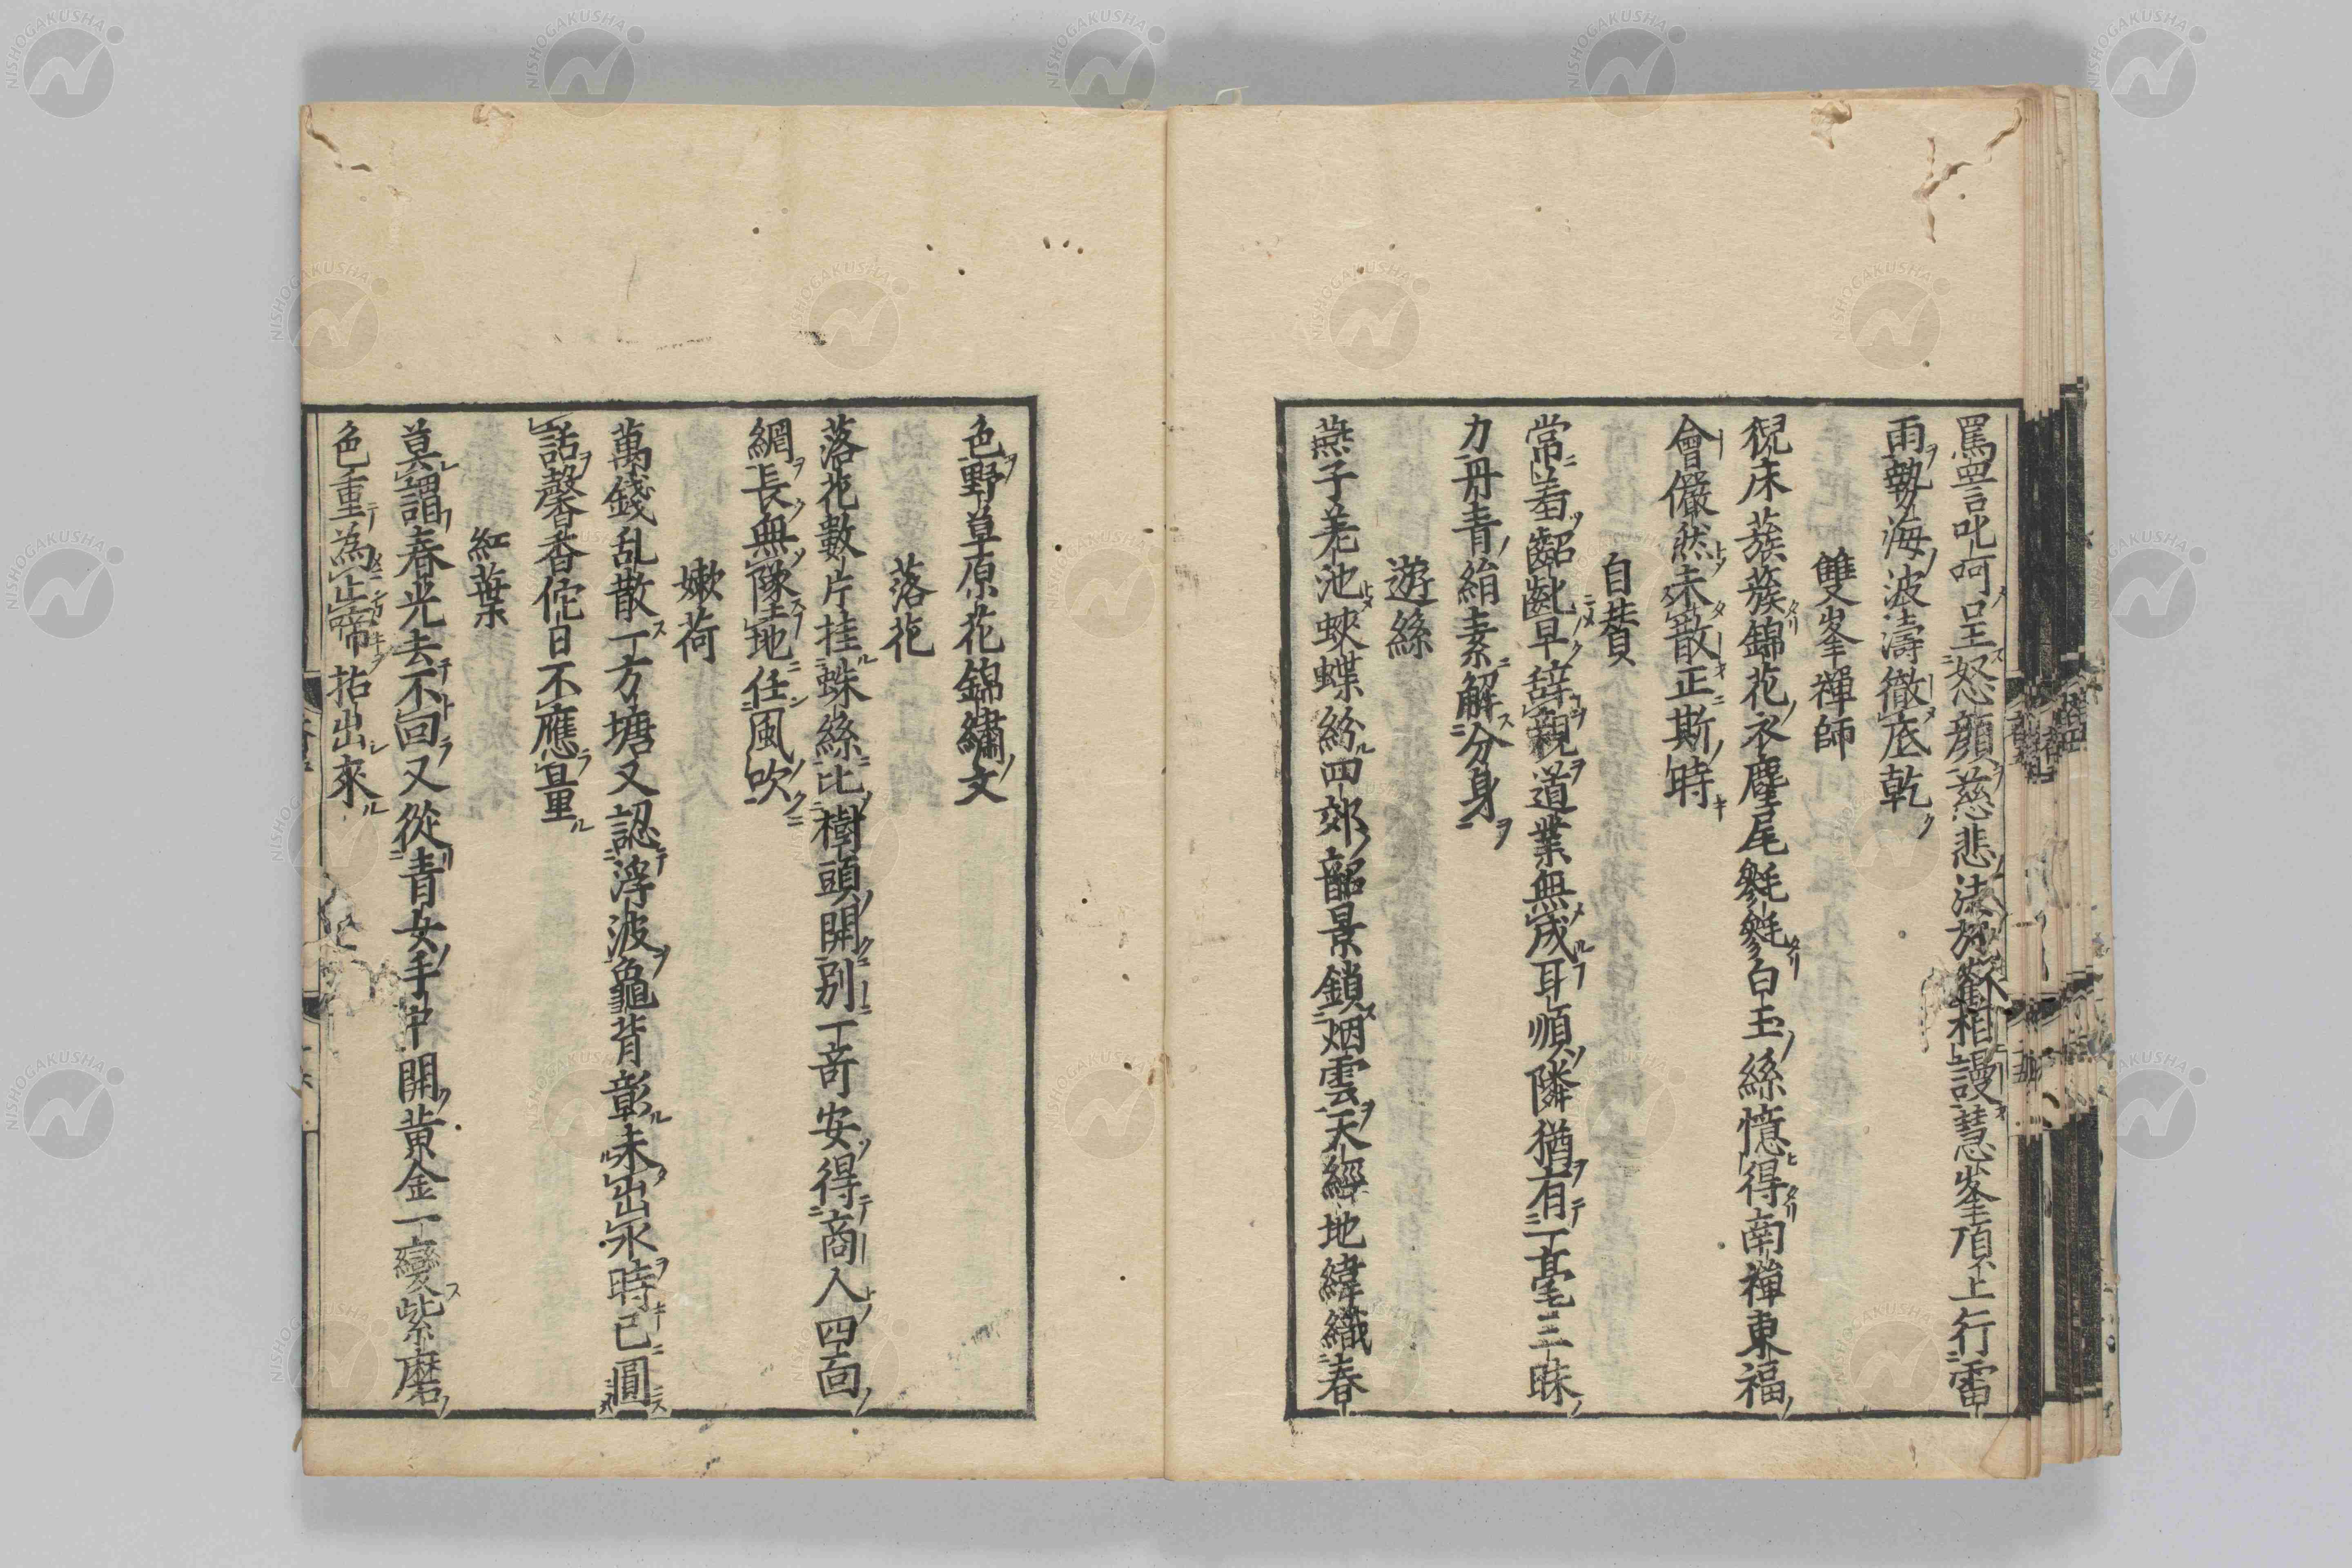 罵詈叱呵呈怒顔慈悲法相謾慧峯頂上行雷
雨執海波濤徹底乾
雙峯禪師
猊床蔟蔟錦花衣麈尾毿毿白玉絲憶得南禪東福
會儼然未散正斯時
自賛
常羞齠齔早辞親道業無成耳順隣猶有一毫三昧
力丹青絹素解分身
遊絲
燕子差池蛺蝶紛四郊韶景鎖烟雲天經地緯織春
色野草原花錦繡文
落花
落花數片挂蛛絲比樹頭開別一奇安得商人四面
網長無墜地任風吹
嫩荷
萬錢乱散一方塘又認浮波龜背彰未出水時已圓
話馨香佗日不應量
紅葉
莫謂春光去不回又從青女手中開黄金一變紫磨
色重為止啼拈出來